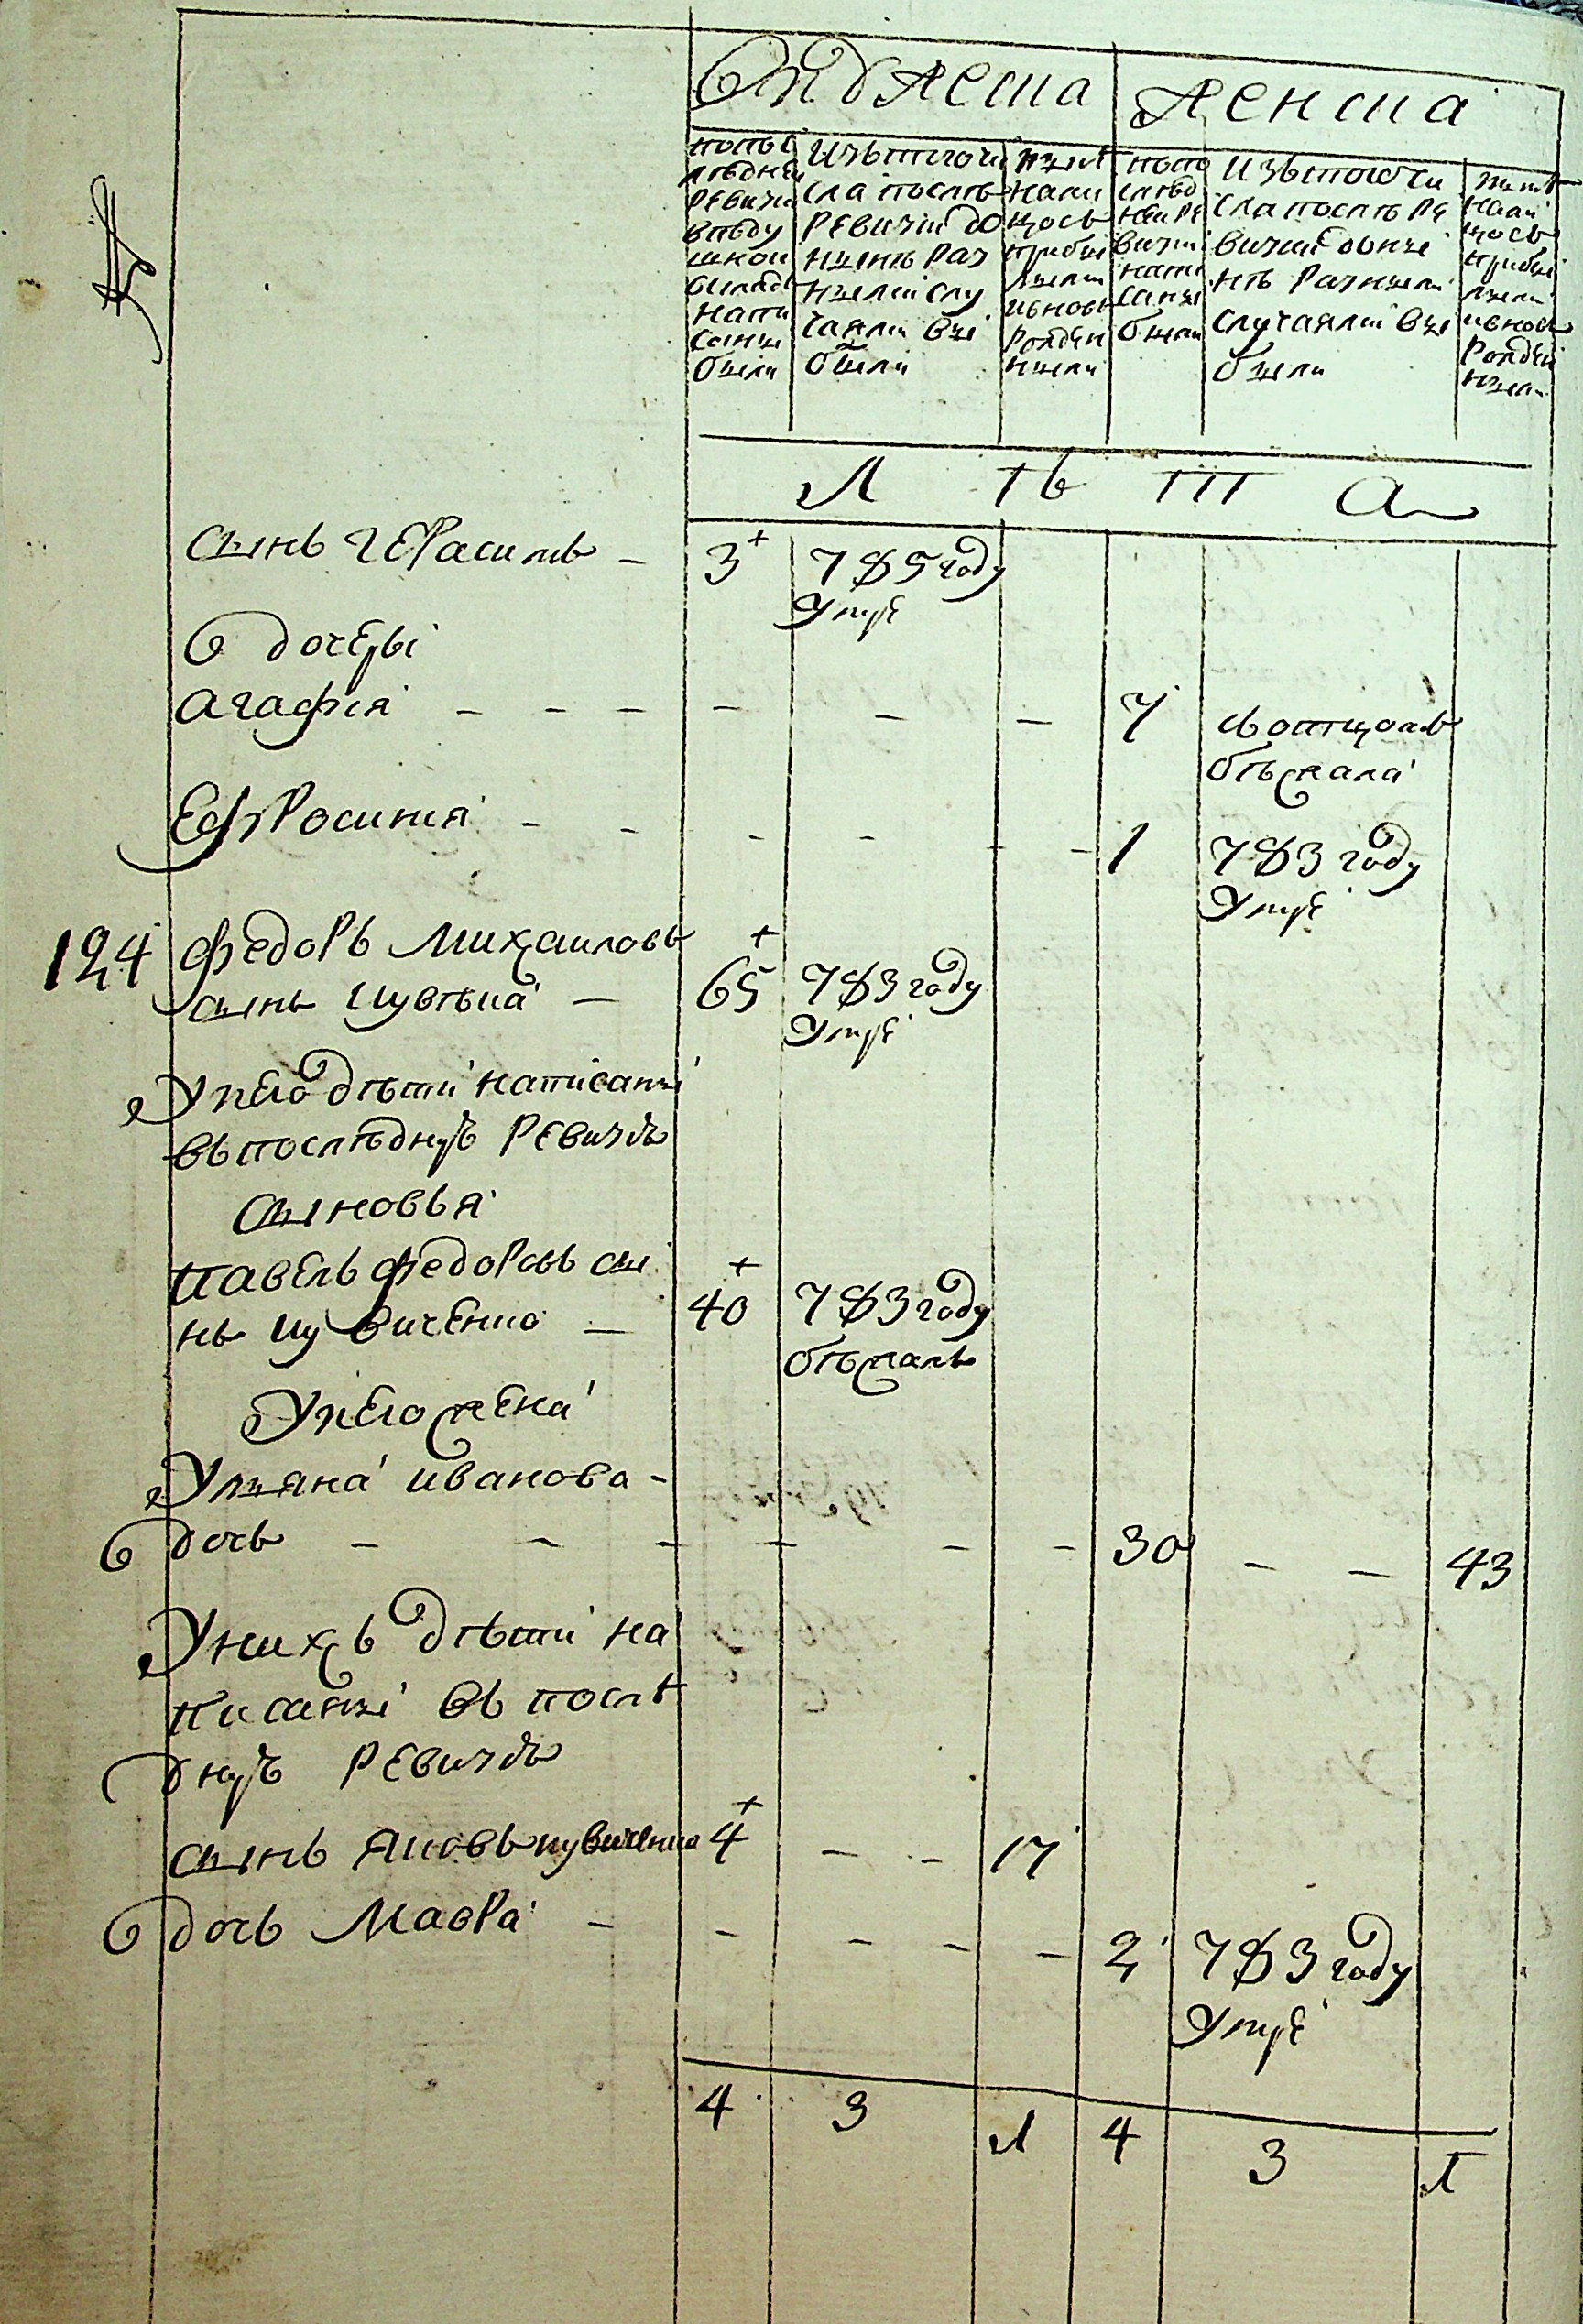 Мужеска
Женска
по по
слѣдней
ревизіи
въ поду
шной
окладъ
напи
саны
были
Изъ того чи
сла послѣ
ревизіи до
нынѣ раз
ными слу
чаями вы
были
Нынѣ
нали
цось
прибы
лыми
и вновь
рожден
ными
по по
слѣд
ней ре
визіи
напи
саны
были
Изъ того чи
сла послѣ ре
визіи до ны
нѣ разными
случаями вы
были
Нынѣ
нали
цось
прибы
лыми
и вновь
рожден
ными
Л ѣ т а
сынъ Герасимъ - 3 785 году
умре
дочери
Агафія - - - - - - 7 съ отцомъ
бѣжала
Ефросинія - - - - - - 1 783 году
умре
124 Федоръ Михайловъ
сынъ - 65 783 году
умре
У него дѣти написаны
въ последную ревизію
Сыновья
Павелъ Федоровъ сы
нъ - 40 783 году
бѣжалъ
У него жена
Ульяна Иванова -
дочь - - - - - - 30 - - 43
У нихъ дѣти на
писаны въ послѣ
дную ревизію
сынъ Яковъ 4 - - 17
дочь Мавра - - - - - 2 783 году
умре
4 3 1 4 3 1